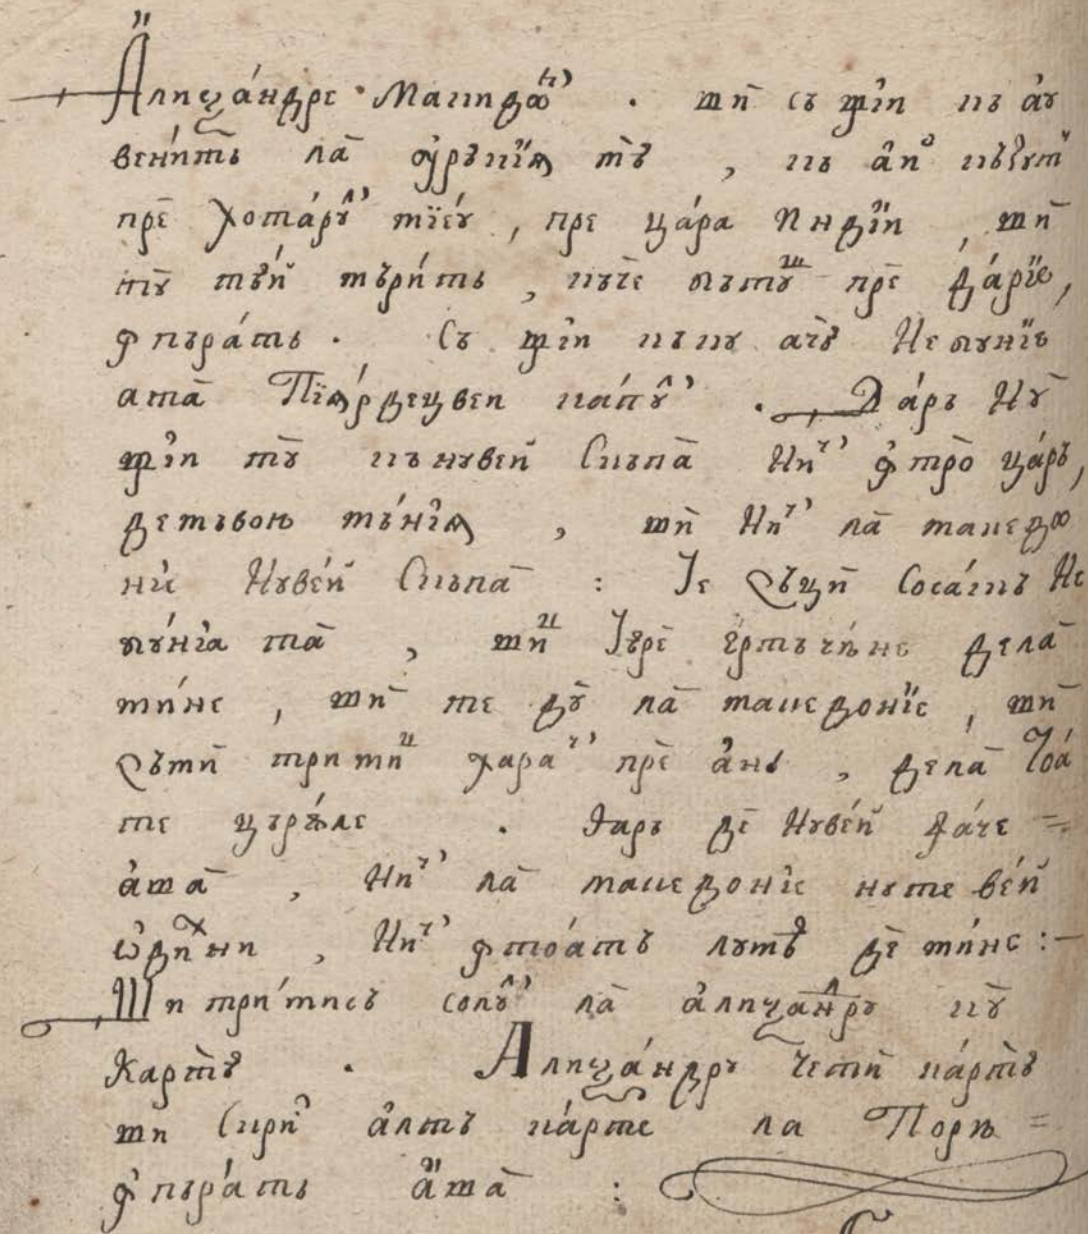 Алиѯандре Макидѡⷩ҇ . ши съ щїи къ аꙋ
венит ла оурѣкїѧ мѣ , къ аиⷭ къзꙋт
пре хотарꙋⷧ҇ мїеꙋ , пре цара Индїи , ши
мꙋ тѣй мъримь , кꙋче бътꙋⷲ пре Дарїе,
ꙟпърать . Съ щїи къкꙋ ачѣ Небꙋнїе
ата Пїѧрдецвеи капꙋⷧ҇ . Дарь Нꙋ
щїи тꙋ къ нꙋвей Скъпа Ниⷱ҇ ꙟтро царъ,
детъвою тънїѧ , ши Ниⷱ҇ ла македѡ
ни Нꙋвей Скъпа : Їе Съци Сосакъ Не
бꙋнїа та , шиⷰ Їѣре ертъчꙋне дела
мине , ши те дꙋ ла македонїе , ши
Сътй тримиⷰ хараⷱ҇ пре ань , дела Тоа
те църѣле . Ꙗарь де Нꙋвей Фаче =
аша , Ниⷱ҇ ла македонїе нꙋте вей
ѡдиⷯни , Ниⷱ҇ ꙟтоатъ лꙋмѣ де мине :—
Ши тримисъ солꙋⷧ҇ ла алиѯандрꙋ кꙋ
Картѣ . Алиѯандрꙋ Чети картѣ
ши Скриⷭ҇ алтъ карте ла Порꙋ =
ꙟпърать аша :